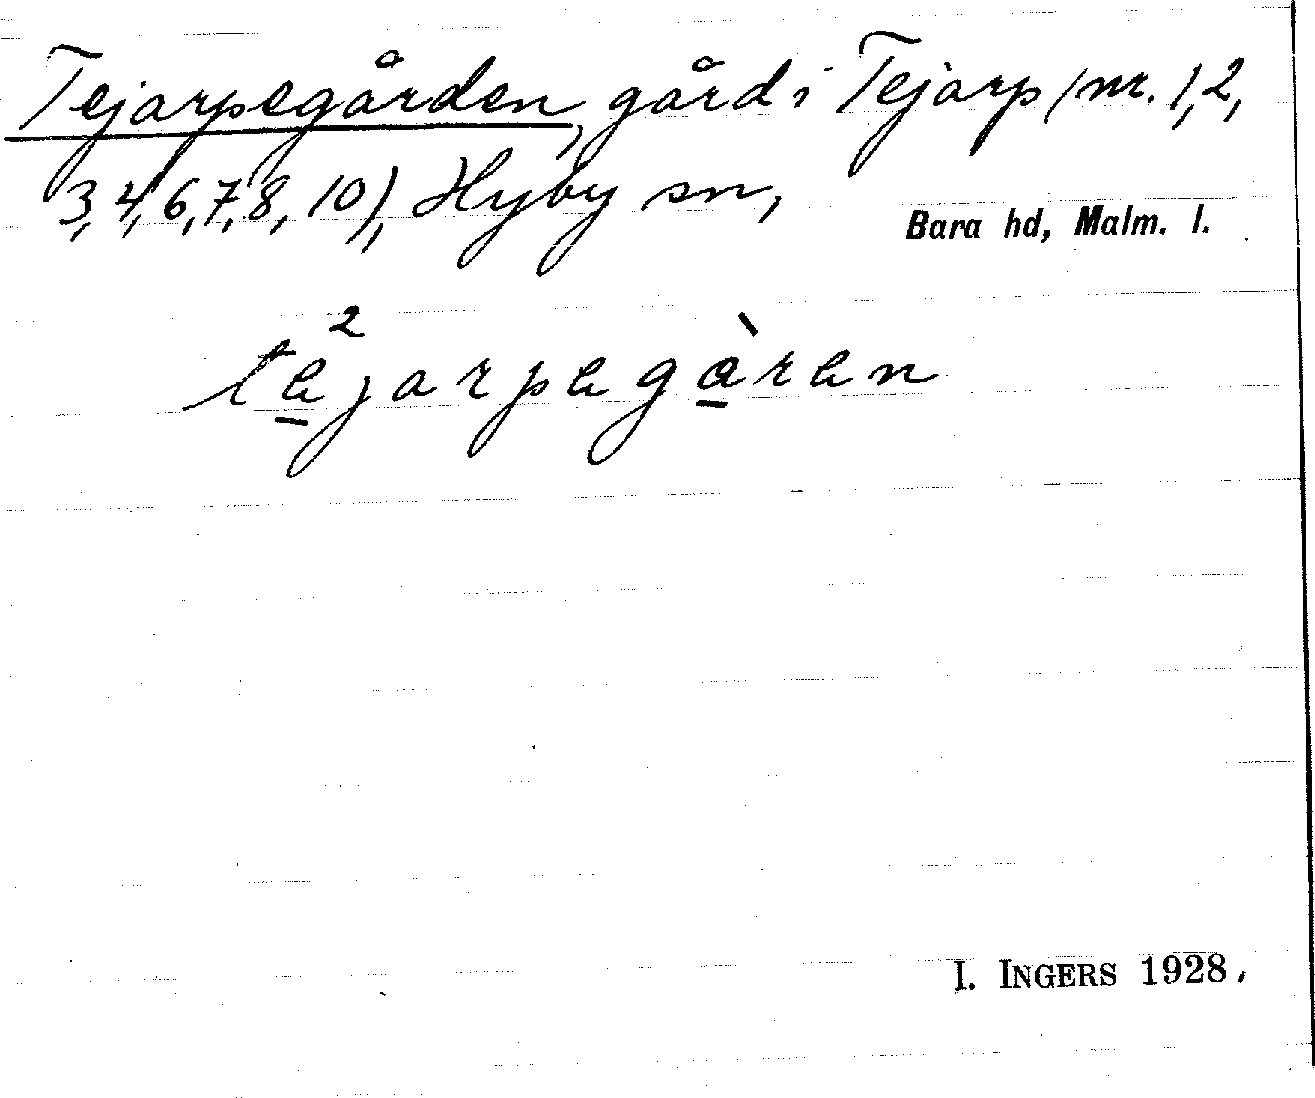 Tejarpegården, gård i Tejarp (nr. 1, 2,
3, 4, 6, 7, 8, 10), Hyby sn,
Bara hd, Malm. l.
te̠²jarpegà̠ren
I. INGERS 1928.